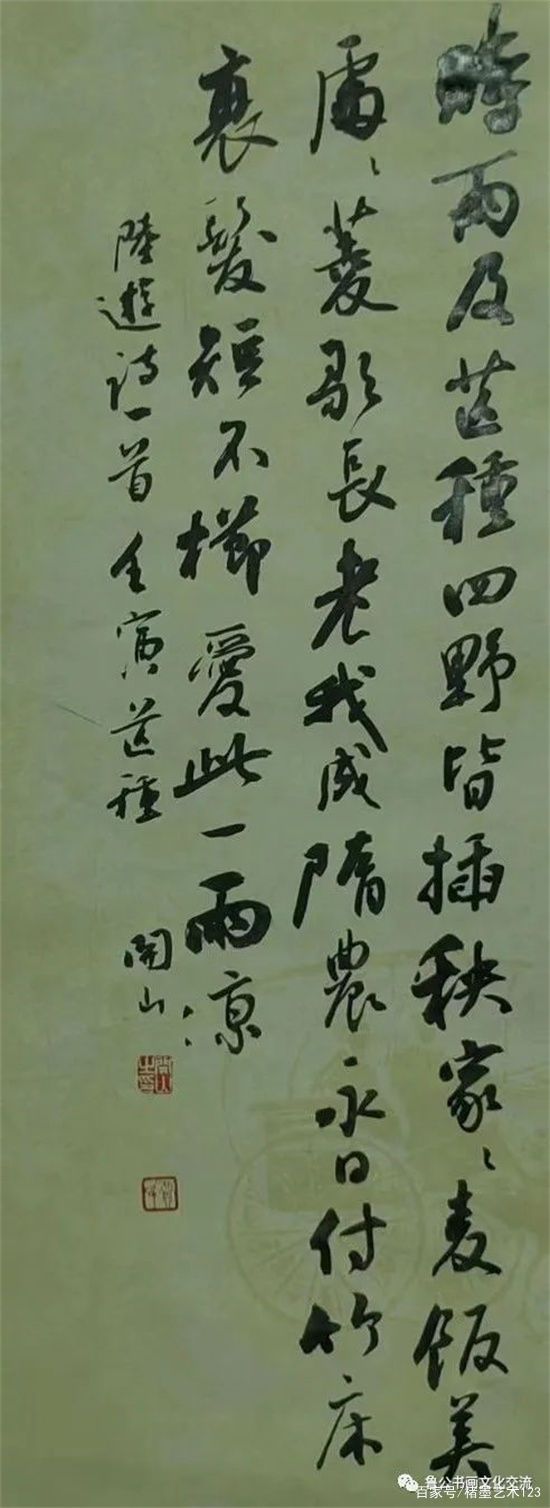 時雨及芒種四野皆插秧家々麦飯美
處々菱歌長老我成隋農永日付竹床
衰髮短不櫛愛此一雨凉
陸遊诗一首壬寅芒種
山
鲁公书画文化交流
百家号/楮墨艺术123